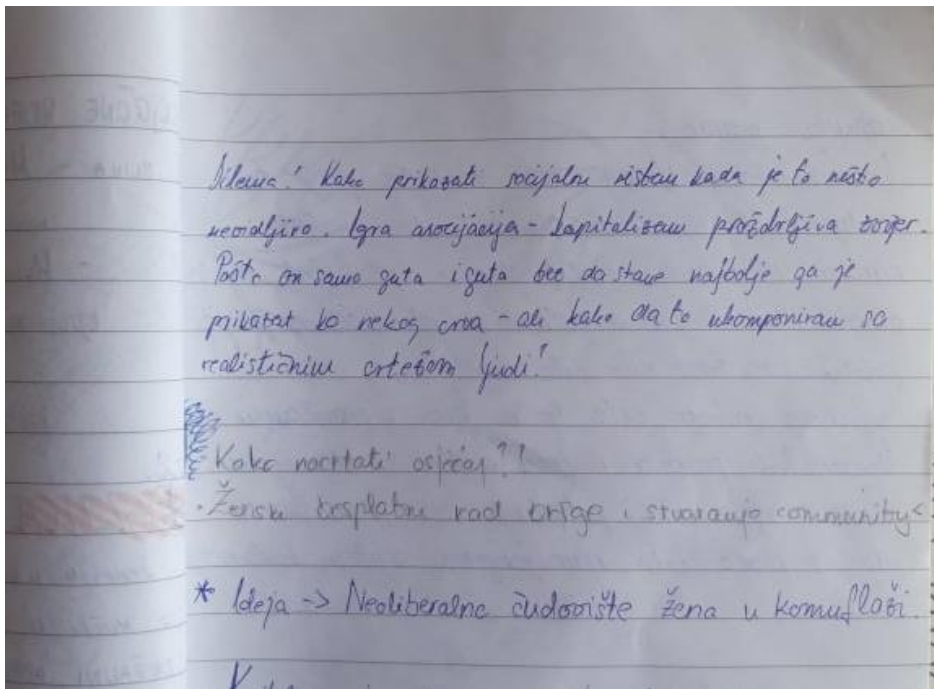 Dilema! Kako prikazati socijalni sistem kada je to nešto
nevidljivo. Igra asocijacija - kapitalizam proždrljiva
Pošto on samo guta i guta bez da stane najbolje ga je
prikazat ko nekog crva - ali kako da to ukomponiram sa
realističnim crtežom ljudi?
Kako nacrtati osjećaj??
· Ženski besplatni rad brige i stvaranje community
* Ideja -> Neoliberalno čudovište žena u komuflaži.